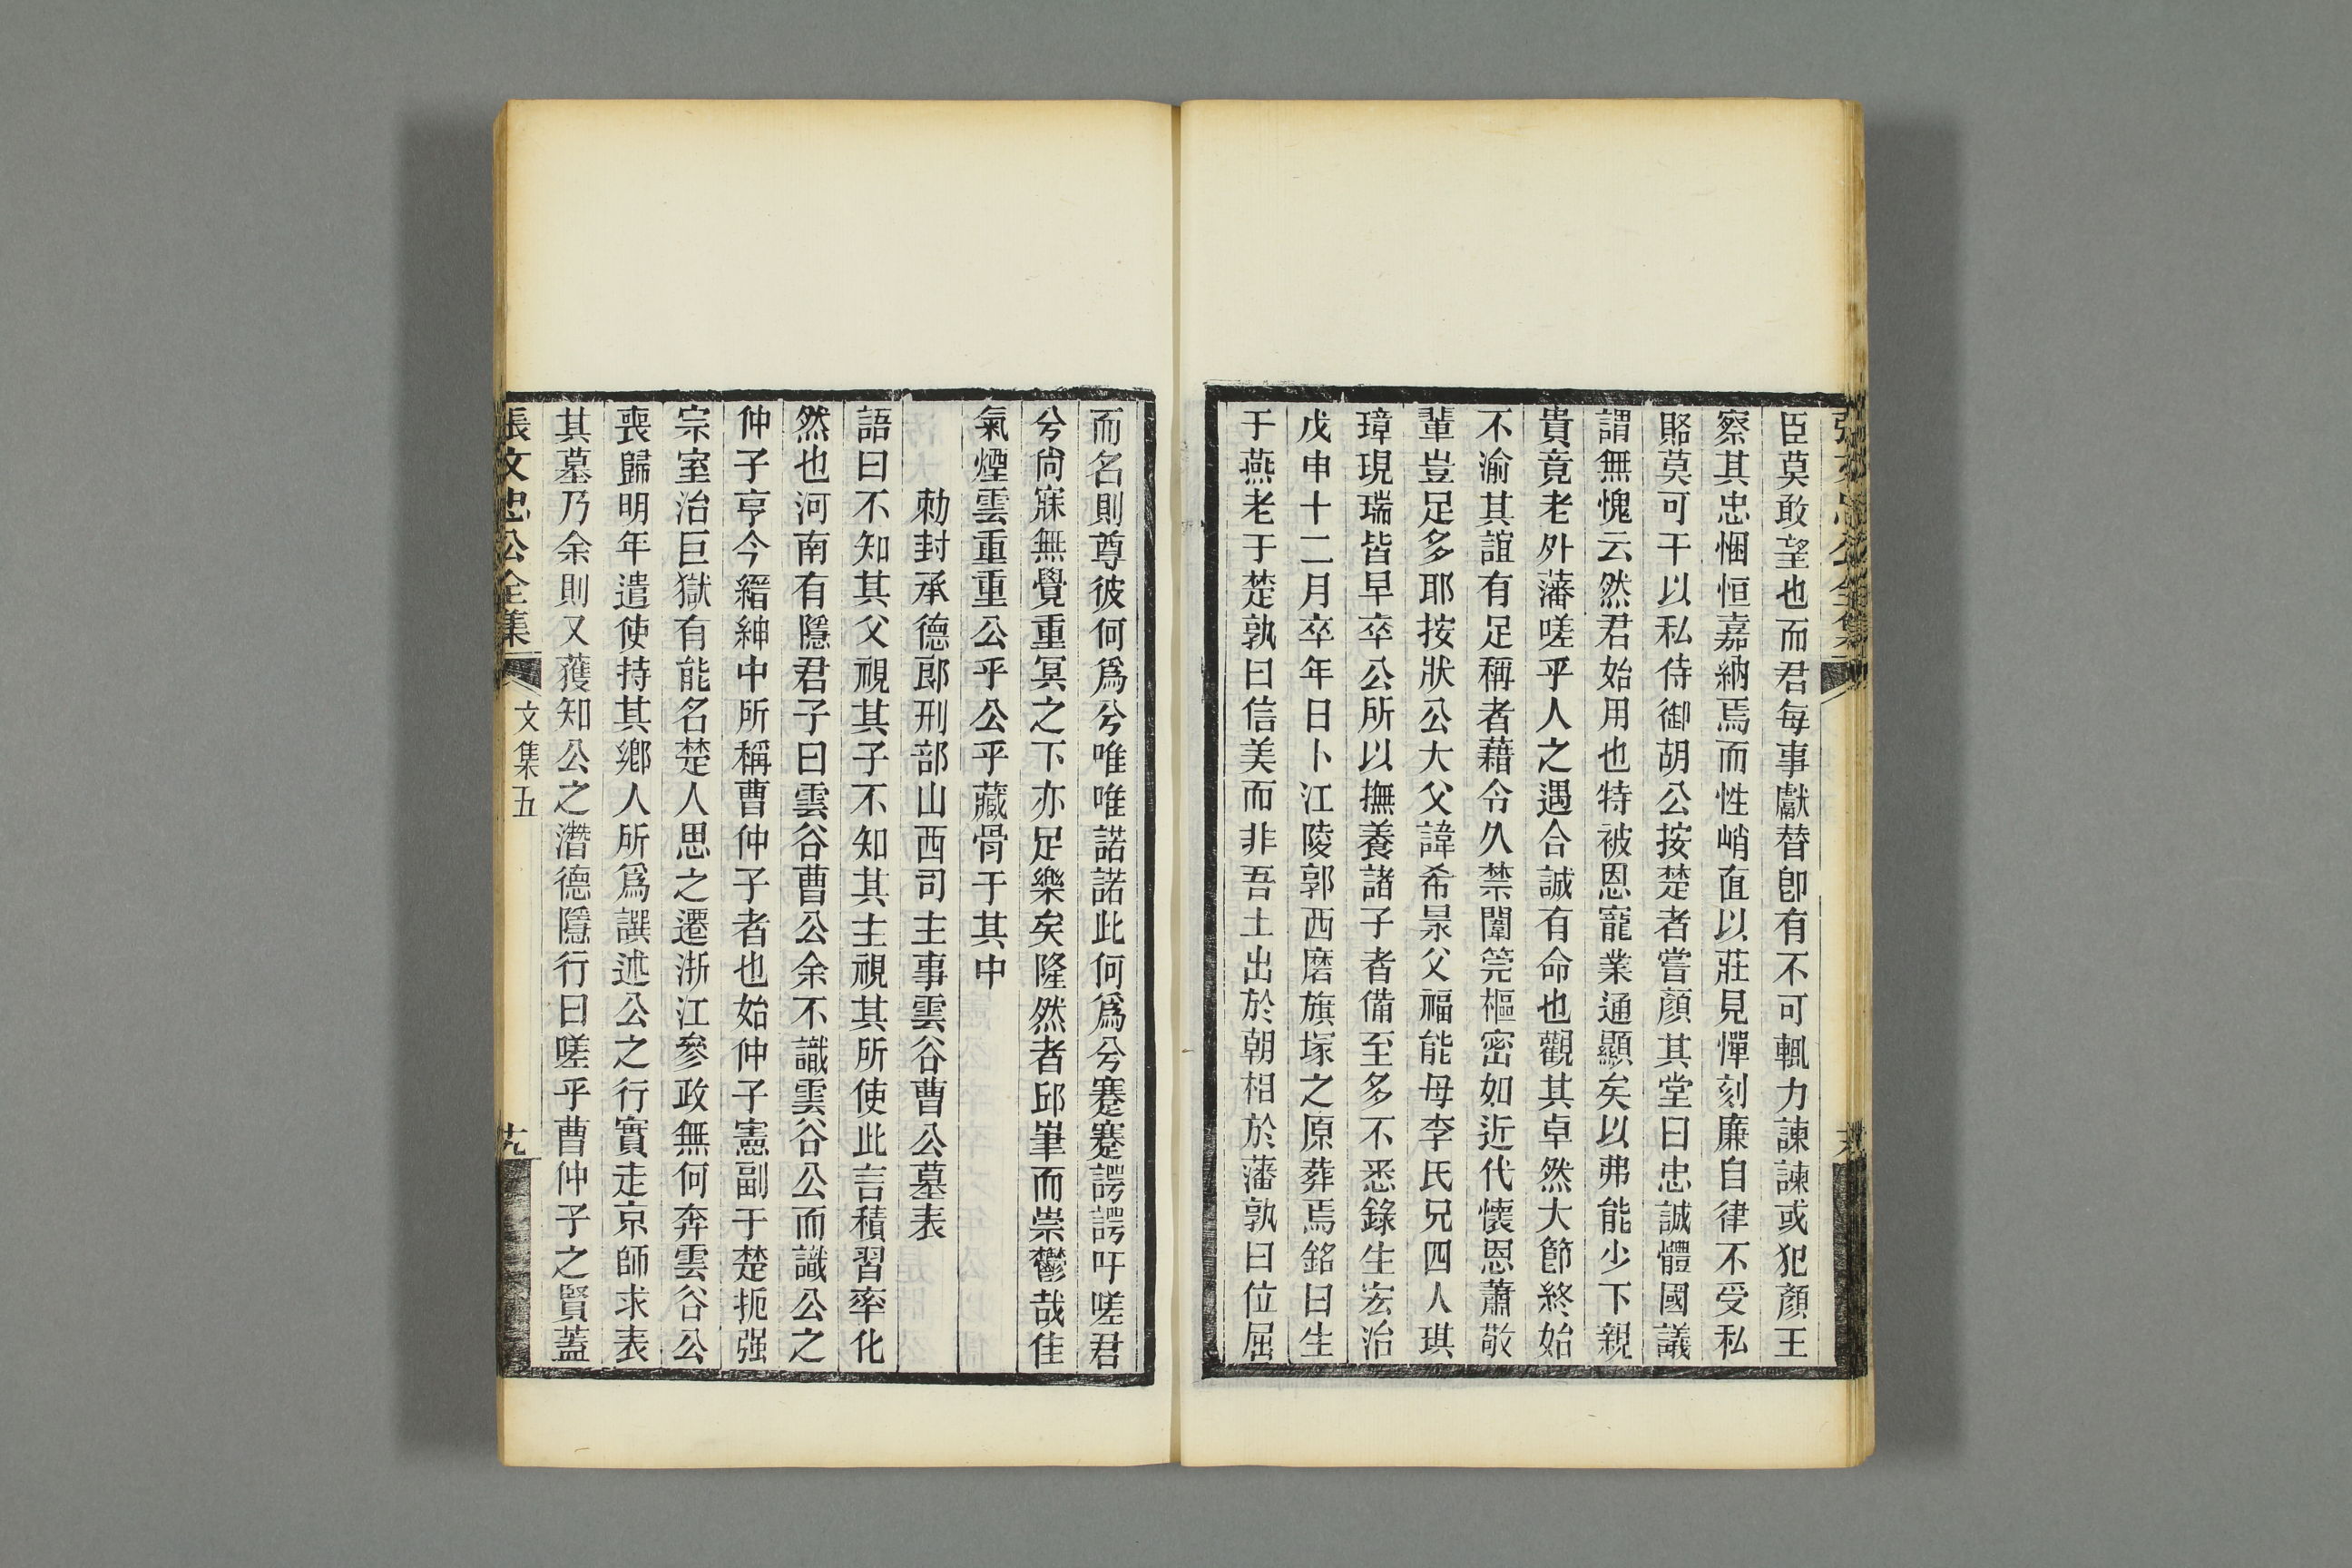 臣莫敢望也而君每事獻替卽有不可輒力諫諫或犯顏王
察其忠悃恒嘉納焉而性峭直以莊見憚刻廉自律不受私
賂莫可干以私侍御胡公按楚者嘗顏其堂曰忠誠體國議
謂無愧云然君始用也特被恩寵業通顯矣以弗能少下親
貴竟老外藩嗟乎人之遇合誠有命也觀其卓然大節終始
不渝其誼有足稱者藉令久禁闈筦樞密如近代懷恩蕭敬
輩豈足多耶按狀公大父諱希杲父福能母李氏兄四人琪
璋現瑞皆早卒公所以撫養諸子者備至多不悉錄生宏治
戊申十二月卒年日卜江陵郭西磨旗塚之原葬焉銘曰生
于燕老于楚孰曰信美而非吾土出於朝相於藩孰曰位屈
而名則尊彼何爲兮唯唯諾諾此何爲兮蹇蹇諤諤吁嗟君
兮尙寐無覺重冥之下亦足樂矣隆然者邱崋而崇鬱哉佳
氣煙雲重重公乎公乎藏骨于其中
勅封承德郎刑部山西司主事雲谷曹公墓表
語曰不知其父視其子不知其主視其所使此言積習率化
然也河南有隱君子曰雲谷曹公余不識雲谷公而識公之
仲子亨今縉紳中所稱曹仲子者也始仲子憲副于楚扼强
宗室治巨獄有能名楚人思之遷浙江參政無何奔雲谷公
喪歸明年遣使持其鄉人所爲譔述公之行實走京師求表
其墓乃余則又獲知公之潛德隱行曰嗟乎曹仲子之賢蓋
張文忠公全集
文集五